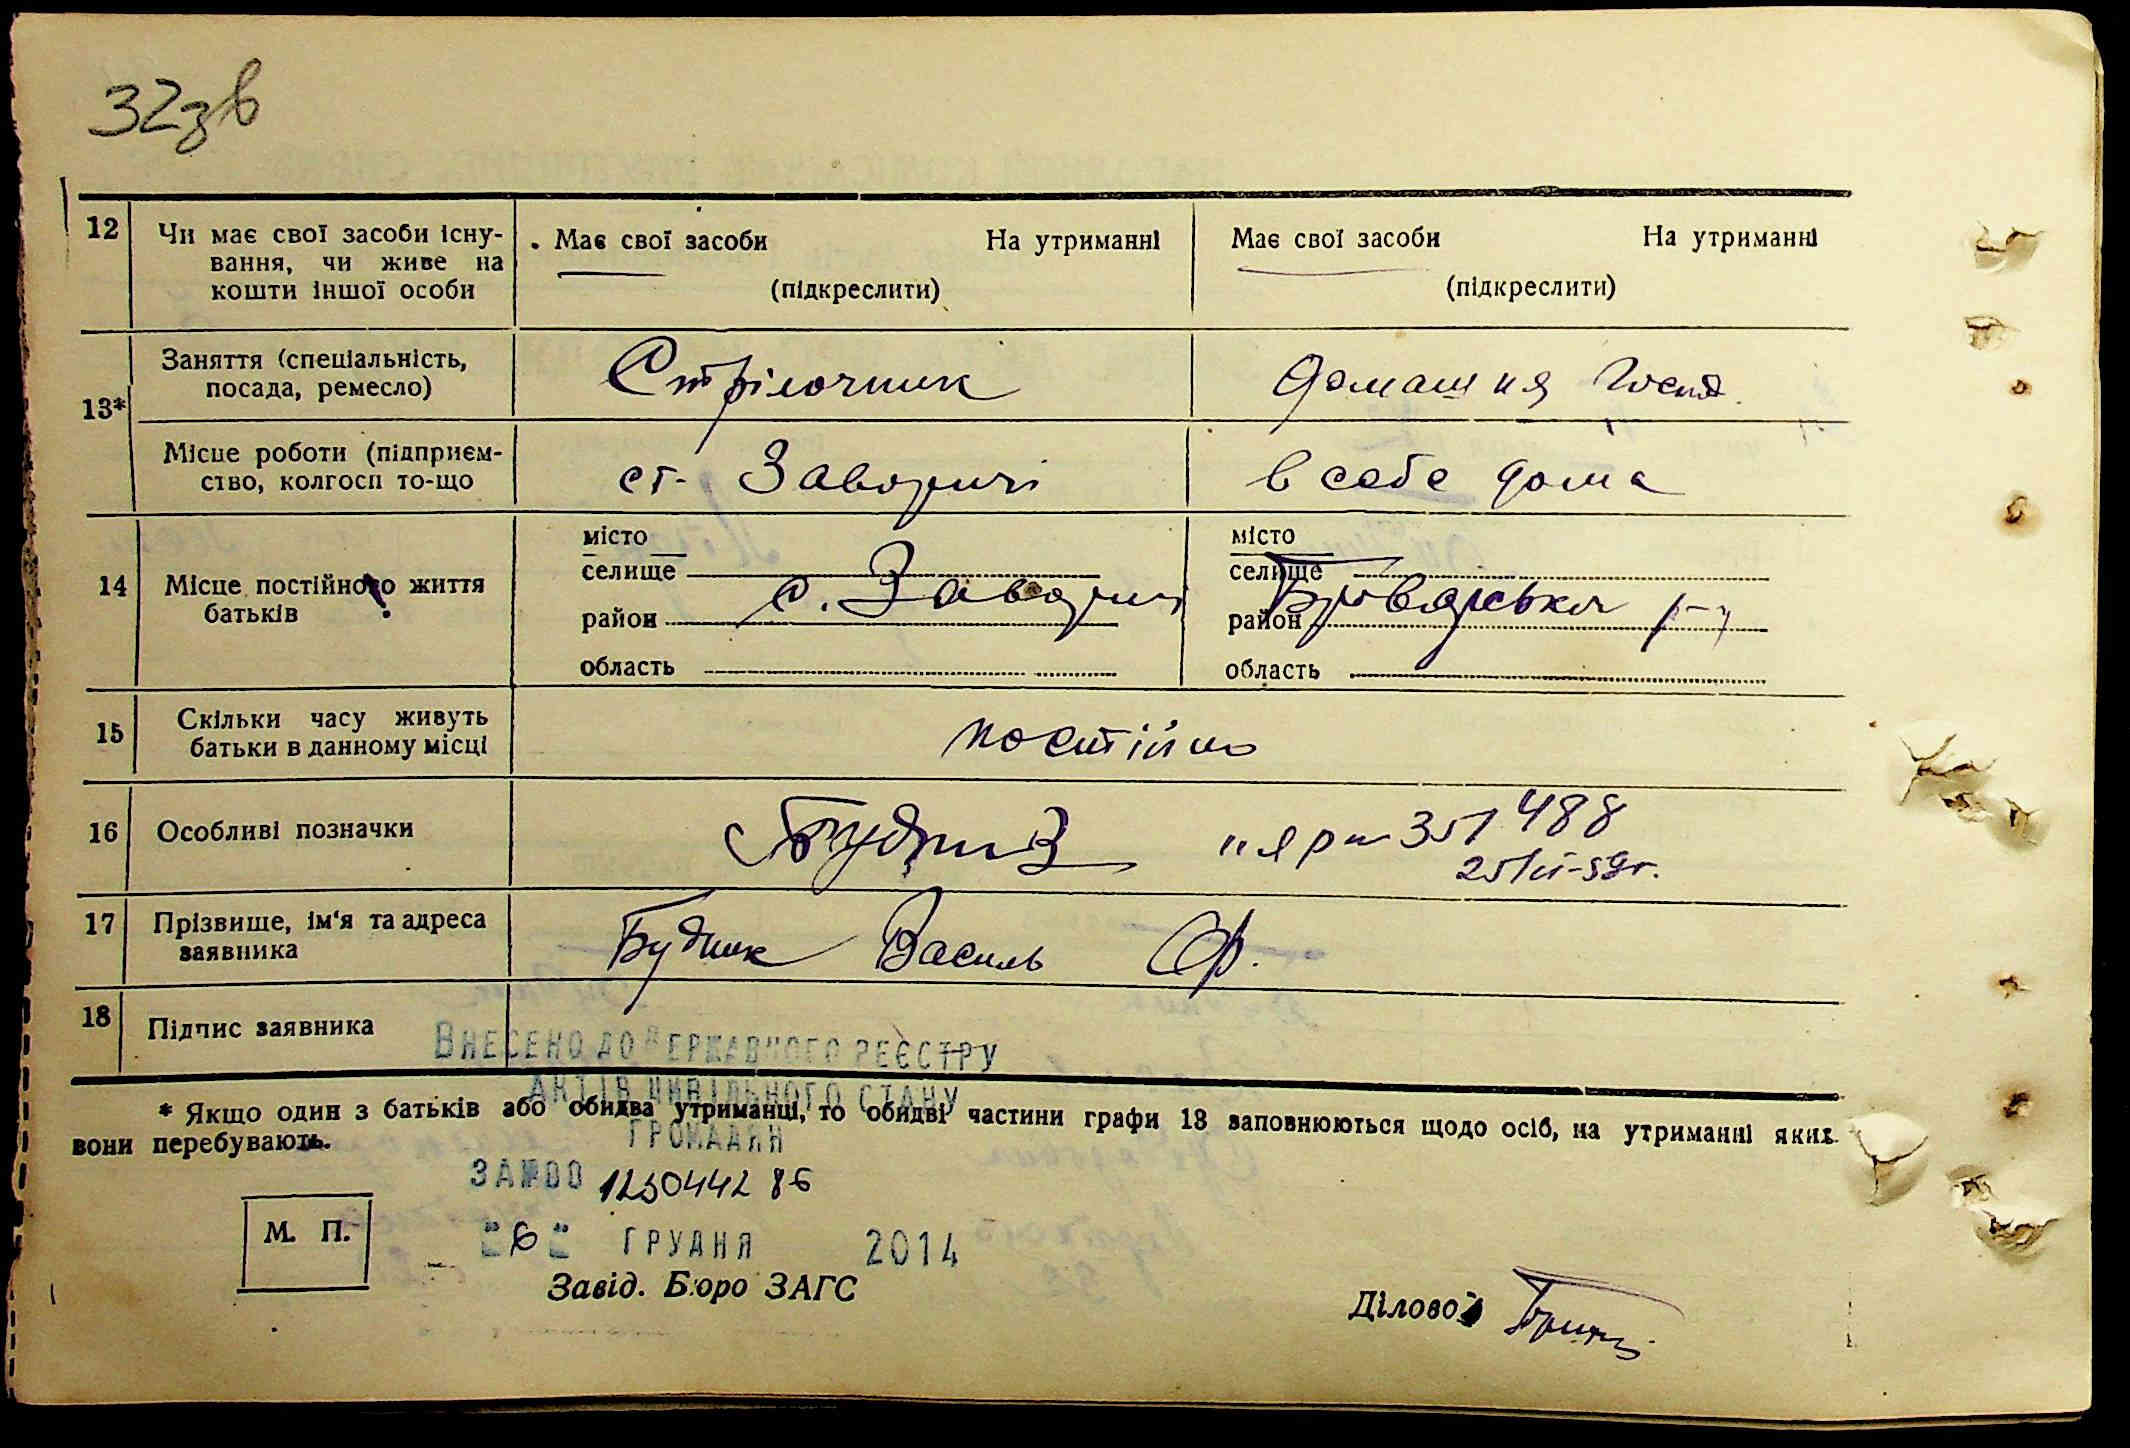 32зв
12
Чи має свої засоби існу-
вання, чи живе на
кошти іншої особи
Має свої засоби На утриманні
(підкреслити)
Має свої засоби На утриманні
(підкреслити)
13*
Заняття (спеціальність,
посада, ремесло)
Стрілочник
домашня госпд.
Місце роботи (підприєм-
ство, колгосп то-що
ст. Заворичі
в себе дома
14
Місце постійного життя
батьків
місто
селище
район
область
с. Заворичі
місто
селище
район
область
Броварський р-н
15
Скільки часу живуть
батьки в данному місці
постійно
16
Особливі позначки
351 488
17
Прізвище, ім'я та адреса
заявника
Будник Василь Ф.
18
Підпис заявника
ВНЕСЕНО ДО ДЕРЖАВНОГО РЕЄСТРУ
АКТІВ ЦИВІЛЬНОГО СТАНУ
ГРОМАДЯН
* Якщо один з батьків або обидва утриманці, то обидві частини графи 13 заповнюються щодо осіб, на утриманні яких
вони перебувають.
ЗА № 00 125044286
М. П.
"6" ГРУДНЯ 2014
Завід. Бюро ЗАГС
Діловод